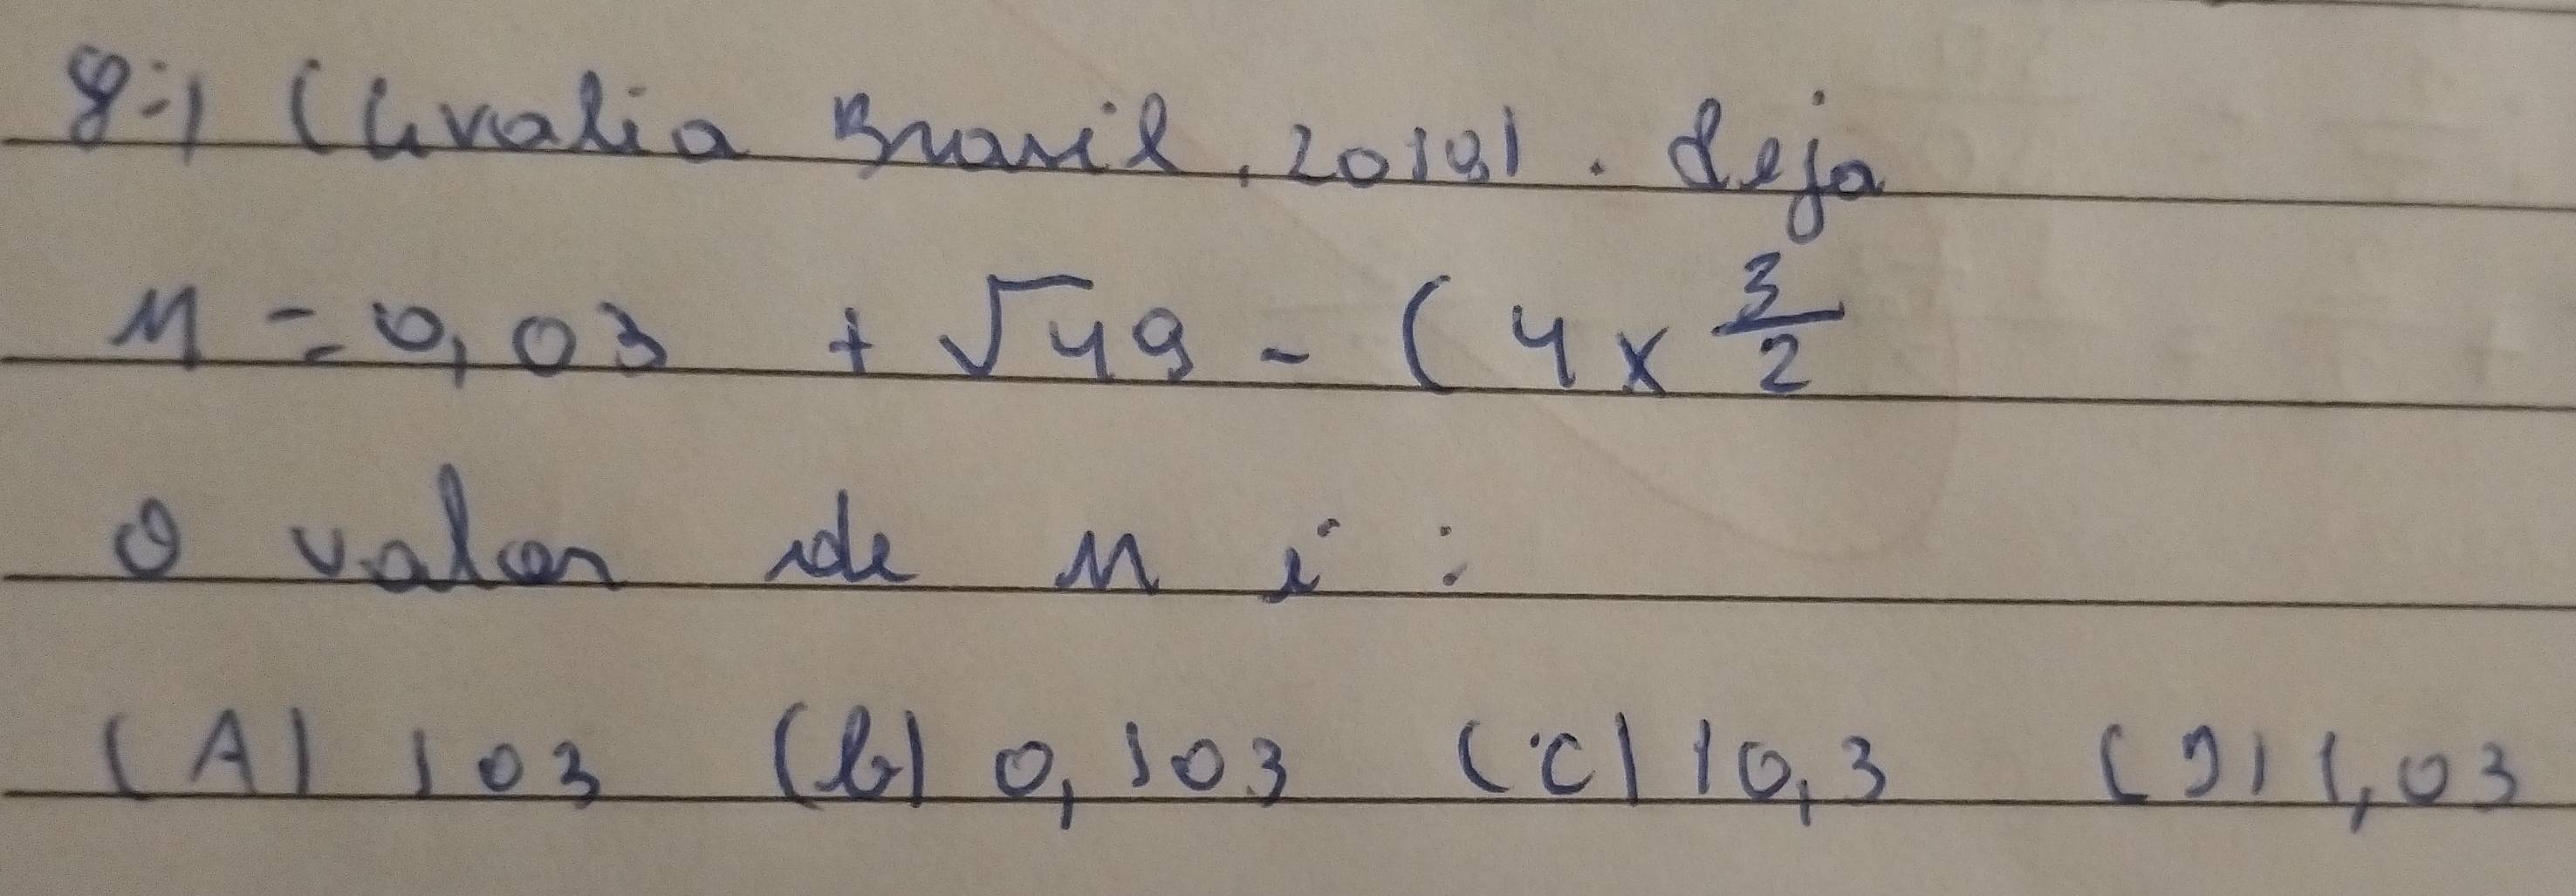 8-) (Avalia Brasil, 2019). Seja
M = 0,03 + √49 - (4 x 3/2
O valor de M é :
(A) 103 (B) 0,103 (C) 10,3 (D) 1,03